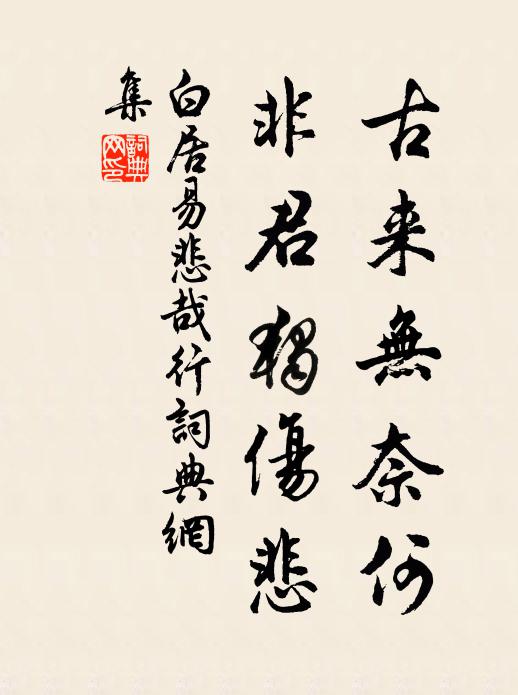 古来無奈何
非君獨傷悲
白居易悲哉行詞典網
集
詞典
网印